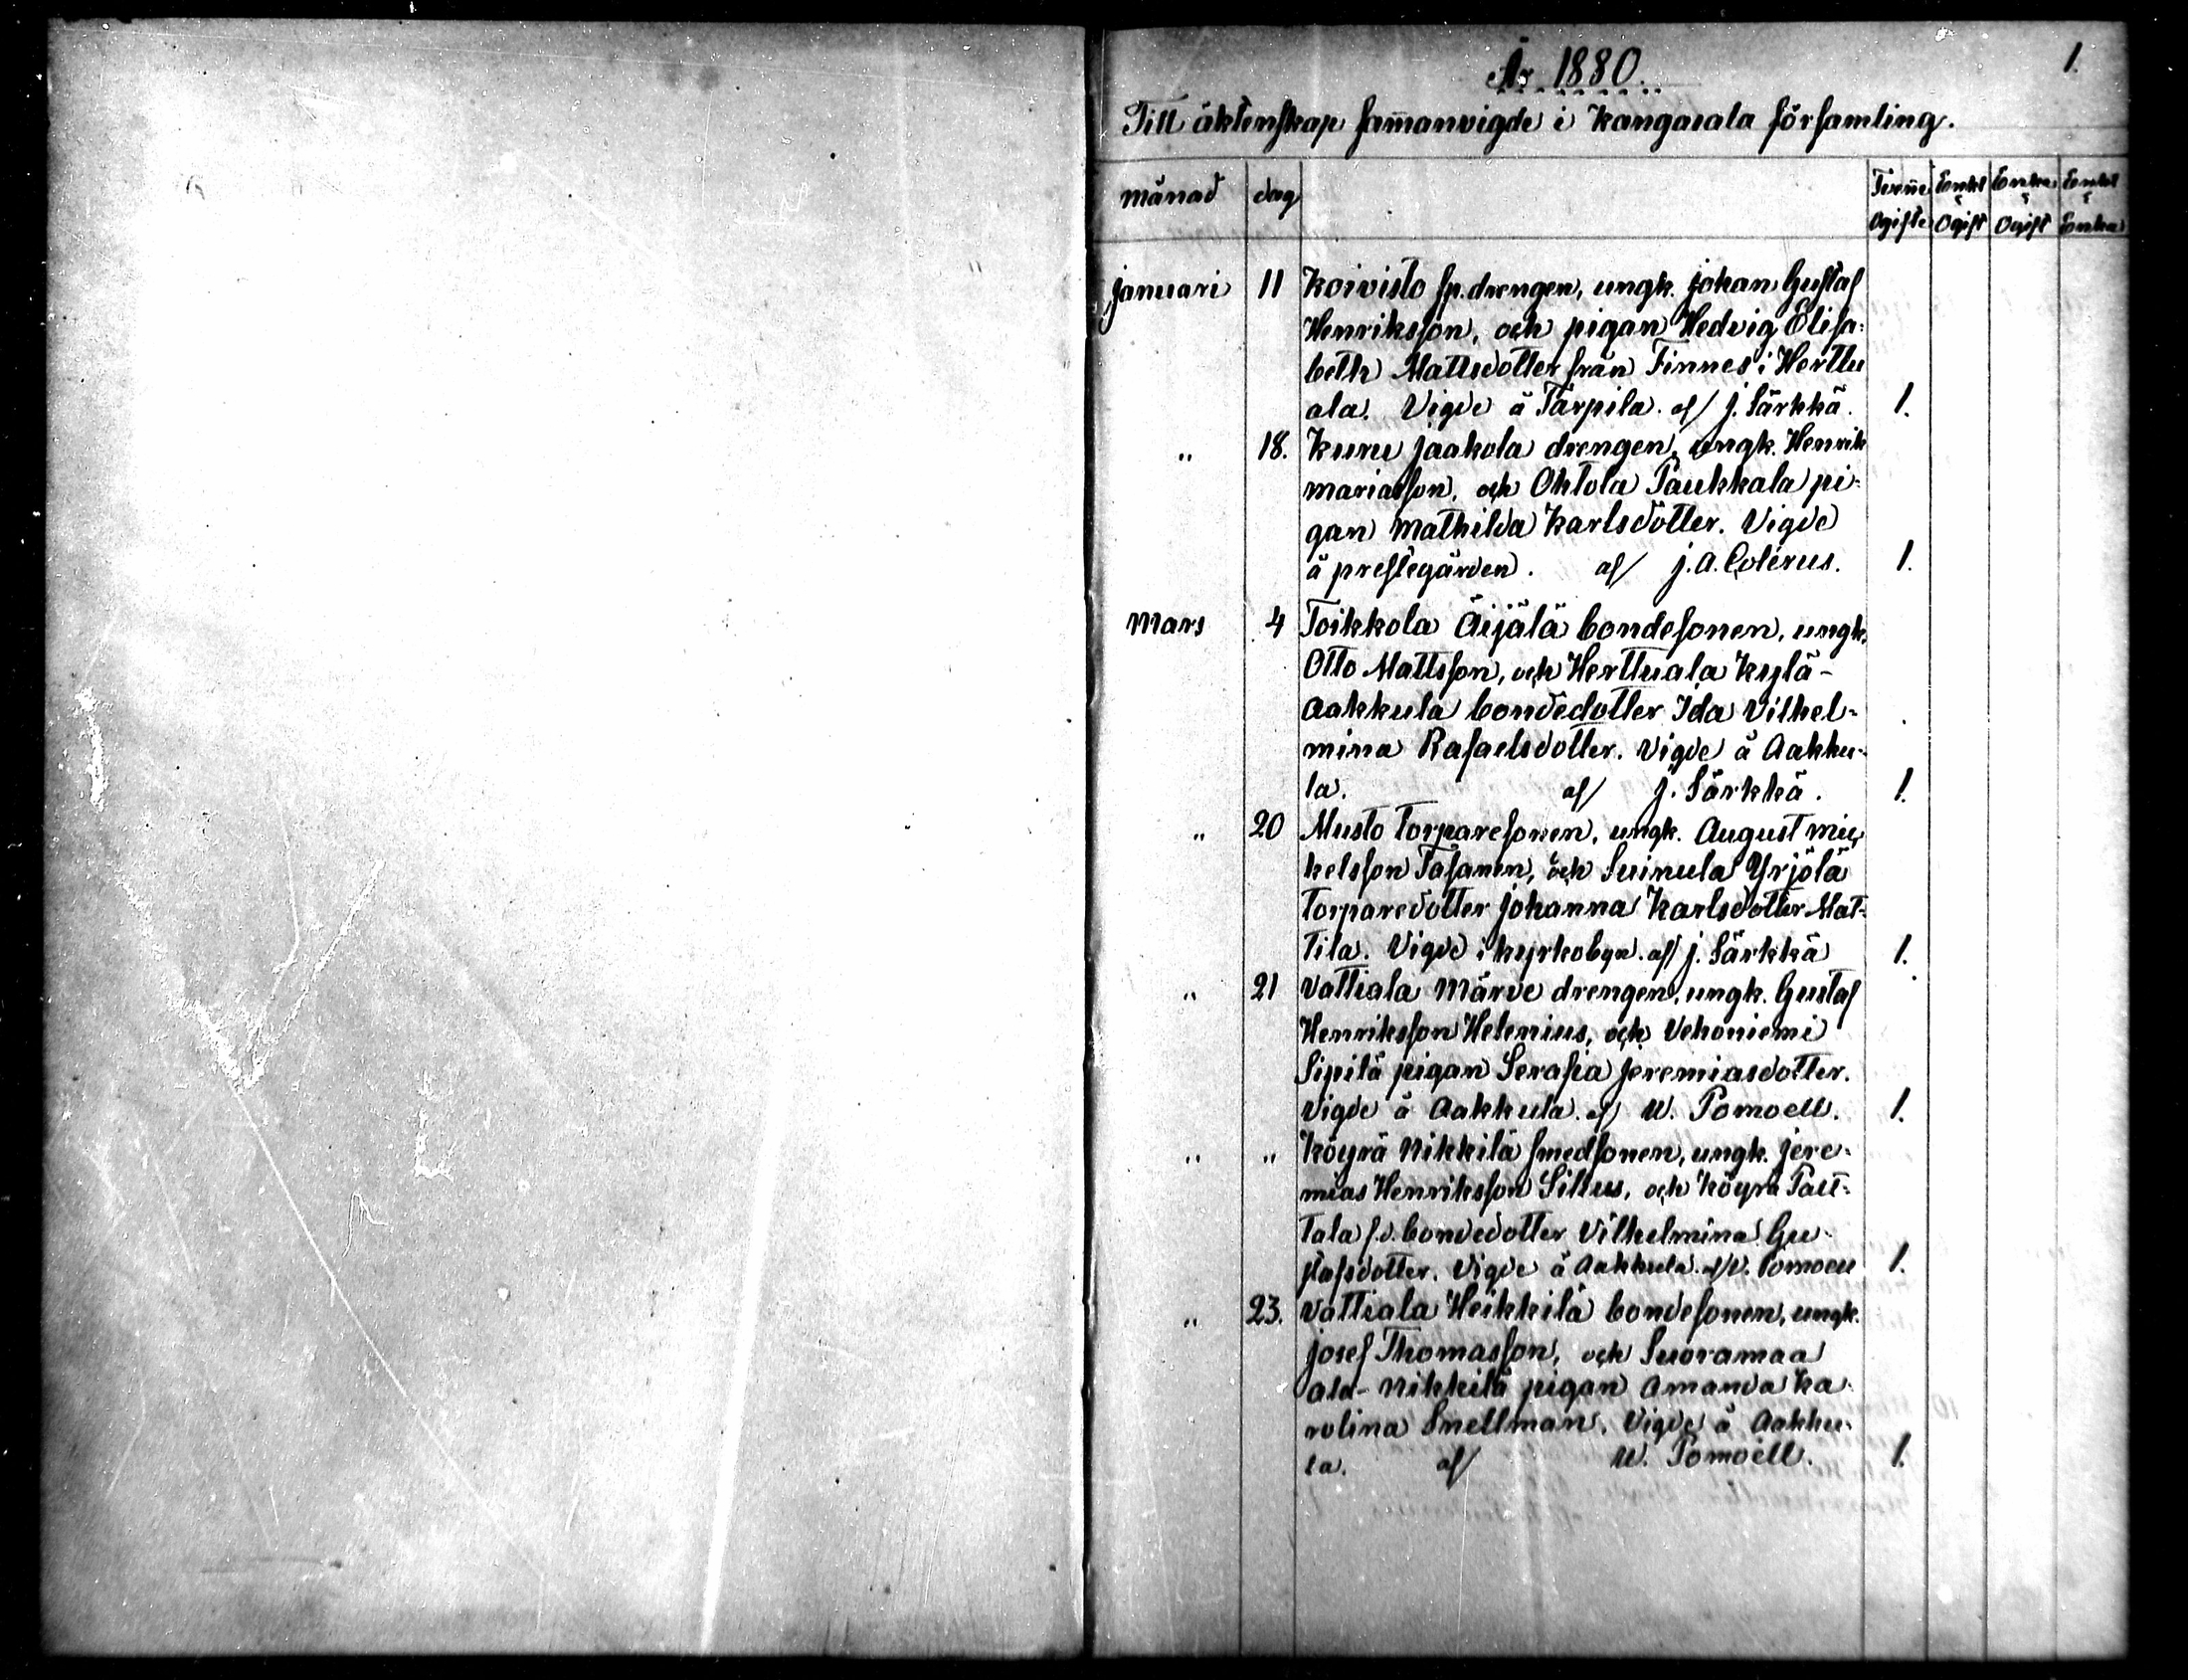 År 1880.
1.
Till äktenskap sam̅anvigde i Kangasala församling.
månad dag Tvenne Ogifte Enkl. o Ogift Enka o Ogift Enkl. o Enka
Januari 11 Koivisto sp.drengen, ungk. Johan Gustaf
Henriksson, och pigan Hedvig Elisa-
beth Mattsdotter från Finnes i Herttu
ala. Vigde å Tarpila af J. Särkkä. 1.
" 18. Kuru Jaakola drengen, ungk. Henrik
Mariasson, och Ohtola Paukkala pi-
gan Mathilda Karlsdotter. Vigde
å prestegården. af J. A. Colérus. 1.
Mars 4 Toikkola Äijälä bondesonen, ungk.
Otto Mattsson, och Herttuala Kylä-
Aakkula bondedotter Ida Vilhel-
mina Rafaelsdotter. Vigde å Aakku-
la. af J. Särkkä. 1.
" 20 Musto torparesonen, ungk. August Mic-
kelsson Tasanen, och Suinula Yrjölä
torparedotter Johanna Karlsdotter Mat-
tila. Vigde i kyrkobyn. af J. Särkkä 1.
" 21 Vattiala Märve drengen, ungk. Gustaf
Henriksson Helenius, och Vehoniemi
Sipilä pigan Serafia Jeremiasdotter.
Vigde å Aakkula. af W. Pomoell. 1.
" " Köyrä Nikkilä smedsonen, ungk. Jere-
mias Henriksson Sillus, och Köyrä Pait-
tala f.d. bondedotter Vilhelmina Gu-
stafsdotter. Vigde å Aakkula. af W. Pomoell 1.
" 23. Vattiala Heikkilä bondesonen, ungk.
Josef Thomasson, och Suoramaa
Ala-Nikkilä pigan Amanda Ka-
rolina Snellman. Vigde å Aakku-
la. af W. Pomoell. 1.